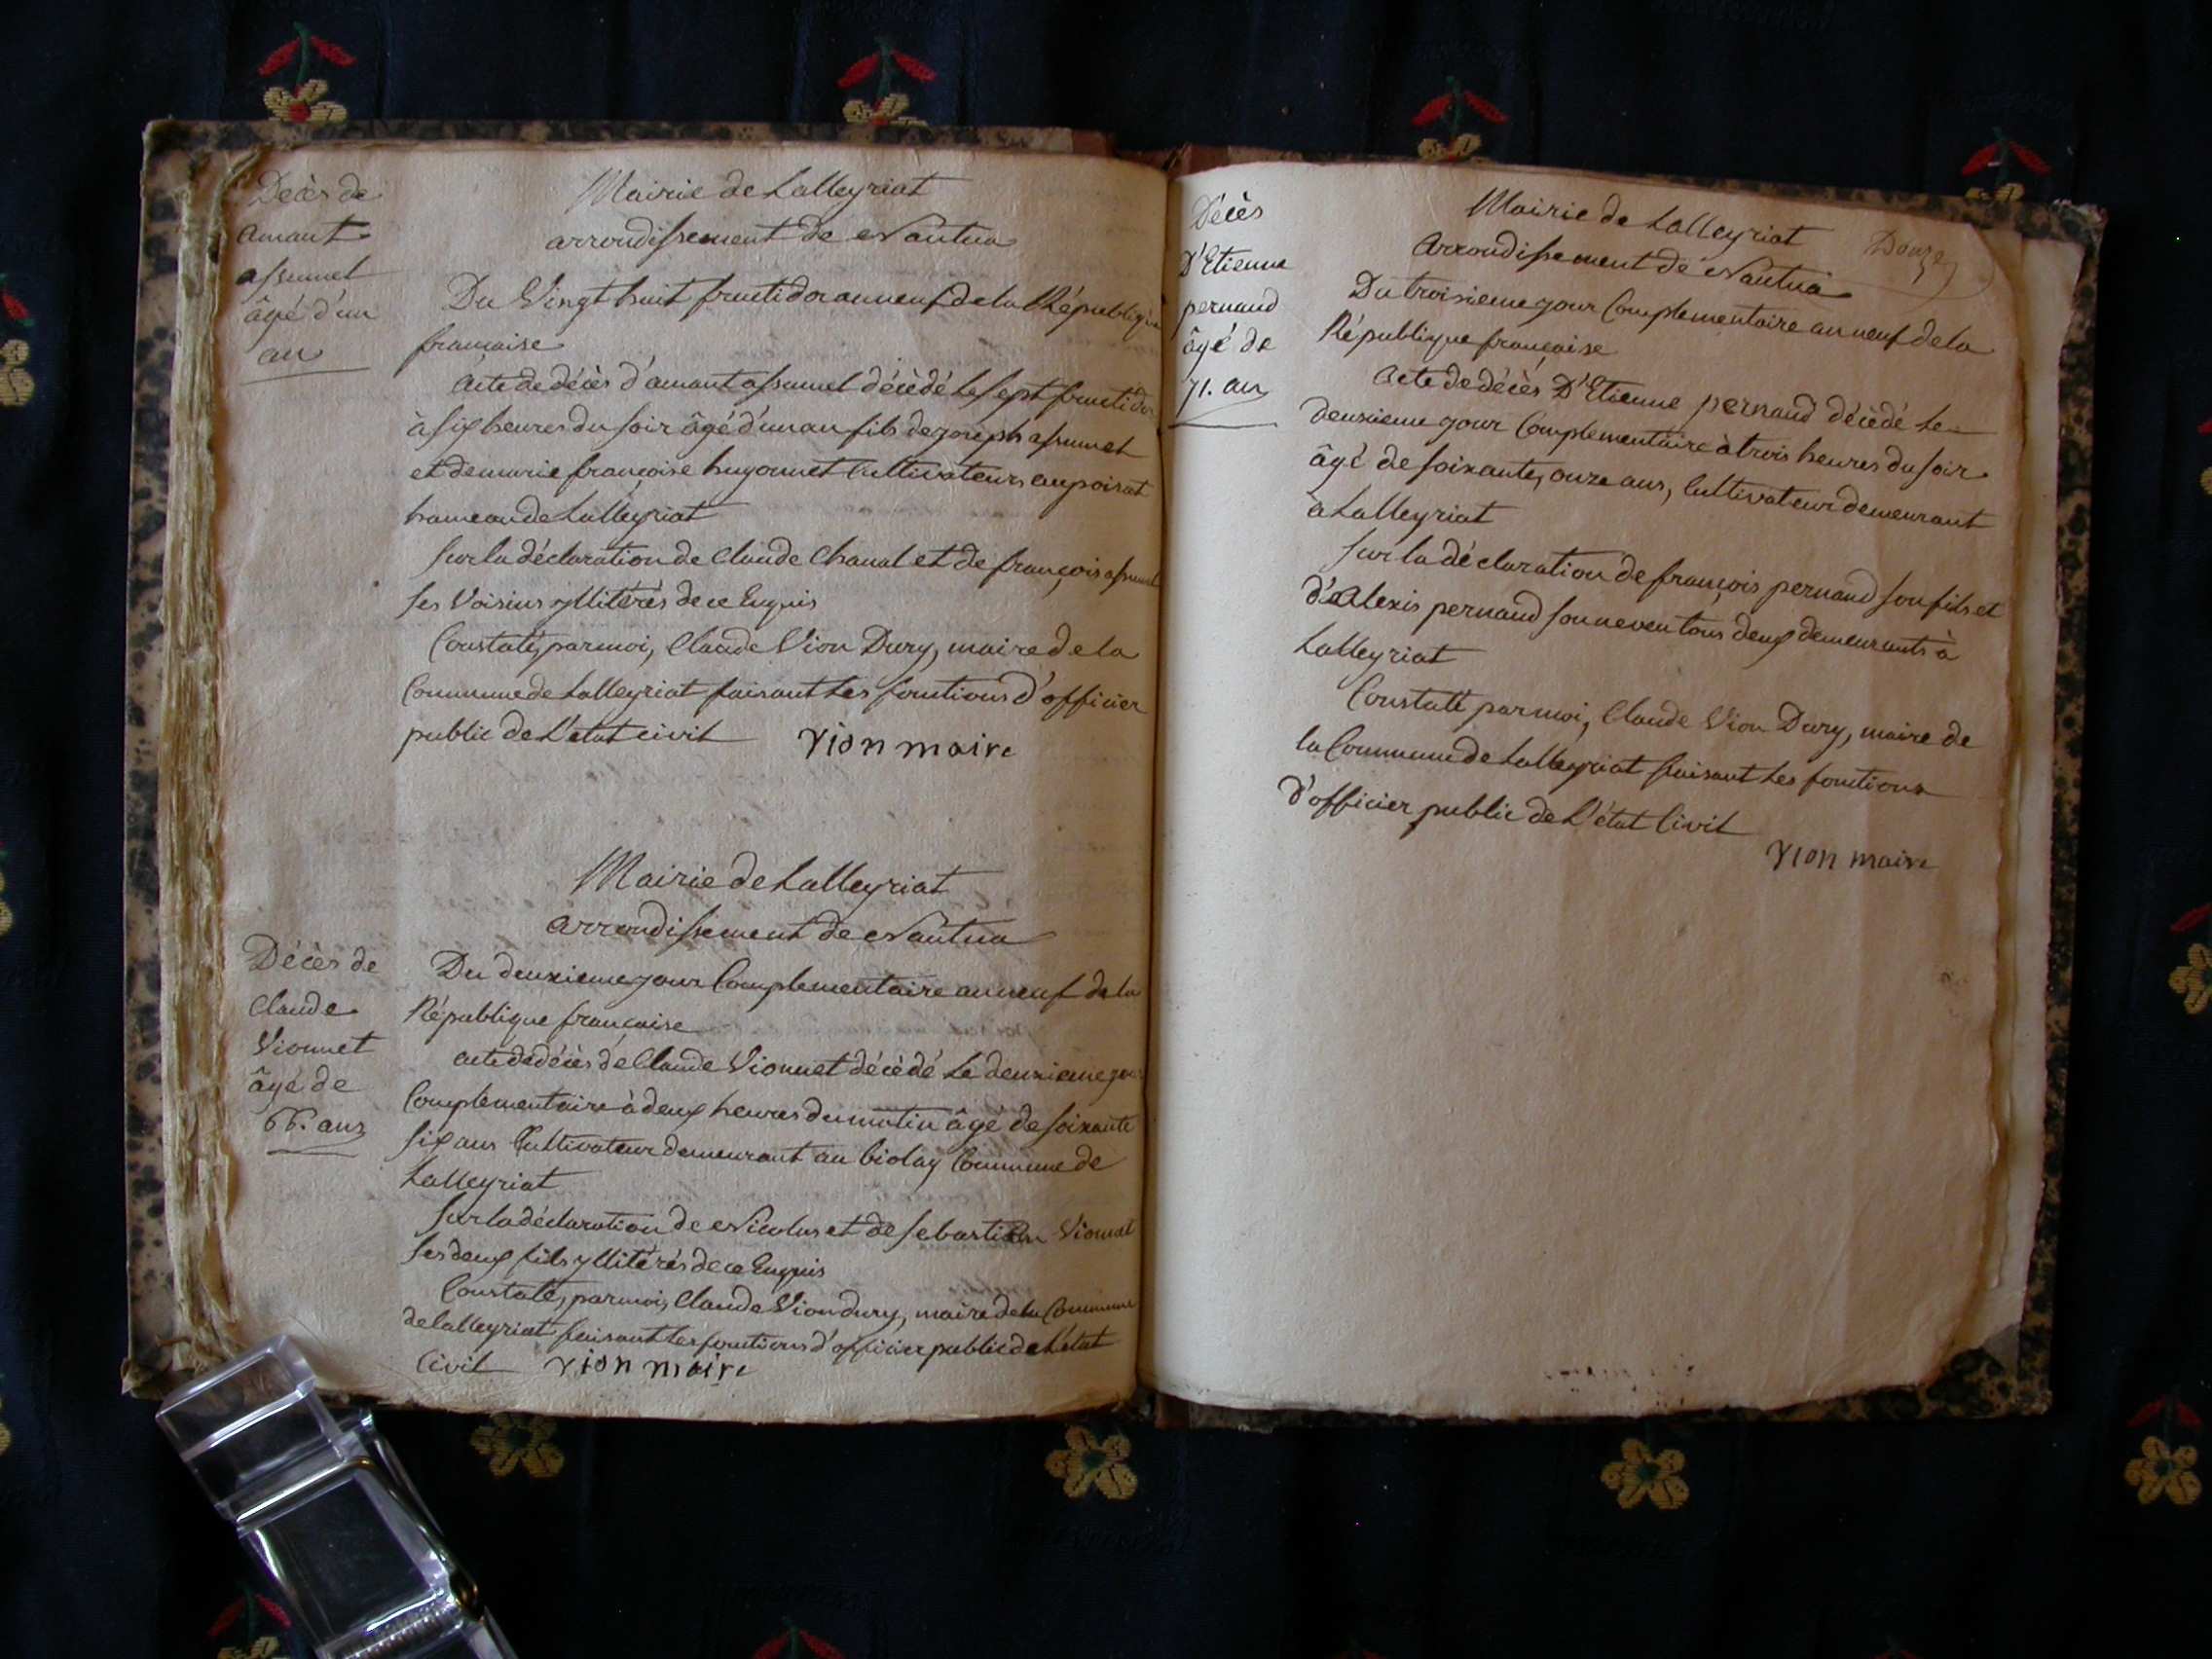 Decès de
amant
assumel
âgé d'un
an
Mairie de Lalleyriat
arrondissement de Nantua
Du Vingt huit fructidor an neuf de la République
francaise
Acte de décès d'amant assumel décèdé le sept fructidor
à six heures du soir âgé d'un an fils de joseph assumel
et de marie françoise hugonnet Cultivateurs au poisat
hameau de Lalleyriat
sur la déclaration de Claude Chanal et de françois assumel
ses Voisins yllitérés de ce Enquis
Constaté, par moi, Claude Vion Dury, maire de la
Commune de Lalleyriat faisant les fonctions d'officier
public de L'etat civil Vion maire
Mairie de Lalleyriat
arrondissement de Nantua
Décès de
Claude
Vionnet
âgé de
66. ans
Du deuxieme jour Complementaire an neuf de la
République francaise
acte de décès de Claude Vionnet décèdé Le deuxieme jour
Complementaire à deux heures du matin âgé de soixante
six ans Cultivateur demeurant au biolay Commune de
Lalleyriat
sur la déclaration de Nicolas et de sebastien Vionnet
ses deux fils yllitérés de ce Enquis
Constaté, par moi, Claude Vion dury, maire de la Commune
de Lalleyriat faisant les fonctions d'officier public de L'état
Civil Vion maire
Décès
D'Etienne
pernaud
âgé de
71. an
Mairie de Lalleyriat
Douze
Arrondissement de Nantua
Du troisieme jour Complementaire an neuf de la
République françaisse
Acte de décès D'Etienne pernaud décèdé Le
deuxieme jour Complementaire à trois heures du soir
âgé de soixante, onze ans, Cultivateur demeurant
a Lalleyriat
sur la déclaration de françois pernaud son fils et
d'Alexis pernaud son neveu tous deux demeurants à
Lalleyriat
Constaté par moi, Claude Vion Dury, maire de
la Commune de Lalleyriat faisant Les fonctions
d'officier public de L'état Civil
Vion maire